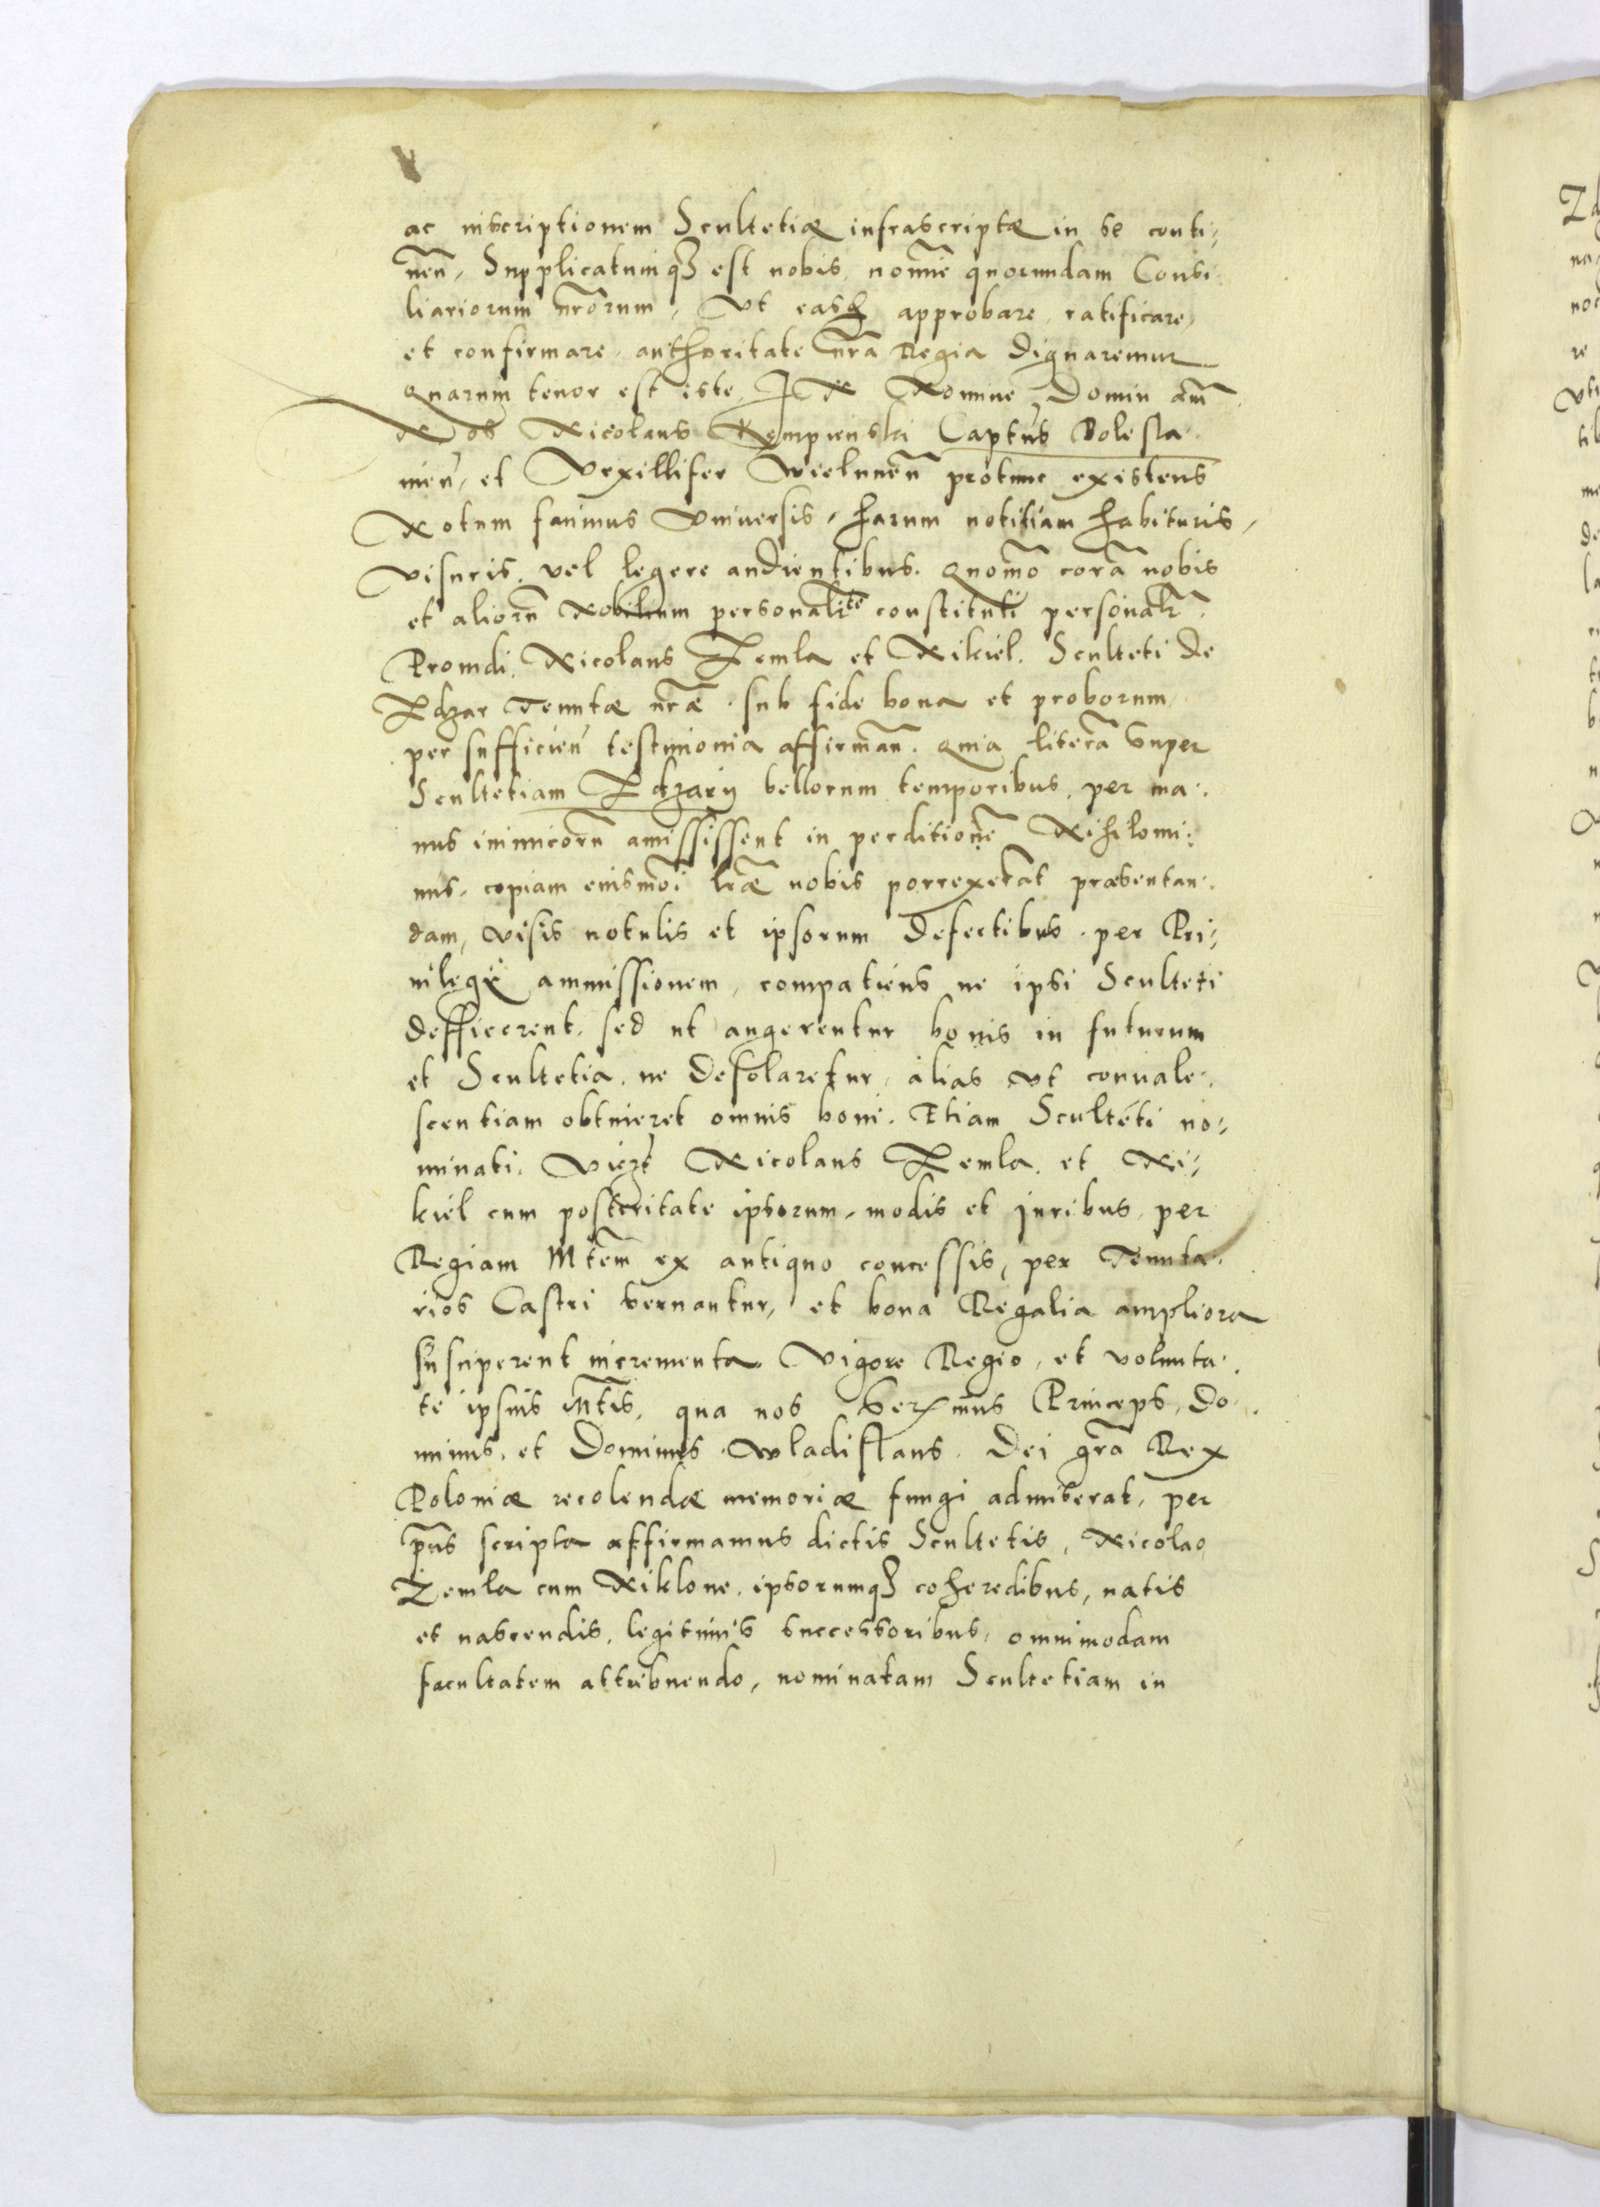 ac inscriptionem Scultetiæ infrascriptæ in se conti¬
nen̄. Supplicatumq₃ est nobis, nomīe quorundam Consi¬
liariorum nr̄orum, Ut easdem approbare, ratificare,
et confirmare, authoritate nr̄a Regia dignaremur
Quarum tenor est iste. In Nomine Domin am̄
Nos Nicolaus Kempienski Captus Bolesla¬
nien̄, et Vexillifer Wielunen̄ protunc existens
Notum facimus Universis, harum notitiam habituris,
visuris, vel legere audientibus. Quomō corā nobis
et aliorū Nobilium personalite constituti personalr̄
Proudi. Nicolaus Zemla et Nikiel. Sculteti de
Zdzar Tenutæ nr̄æ. sub fide bona et proborum
per sufficien̄ testimonia affirman̄. Quia literā super
Scultetiam Zdzarÿ bellorum temporibus, per ma¬
nus inimicorū amississent in perditionē Nihilomi¬
nus, copiam eiusmōi lr̄æ nobis porrexerāt præsentan¬
dam, visis notulis et ipsorum defectibus. per Pri¬
uilegÿ ammissionem, compatiens ne ipsi Sculteti
defficerent, sed ut augerentur bonis in futurum
et Scultetia, ne desolaretur, alias ut conuale¬
scentiam obtineret omnis boni. Etiam Sculteti no¬
minati. Vizt Nicolaus Zemla, et Ni¬
kiel cum posteritate ipsorum, modis et juribus, per
Regiam Mtēm ex antiquo concessis, per Tenuta¬
rios Castri seruantur, et bona Regalia ampliora
susciperent incrementa. Vigore Regio, et volunta¬
te ipsius Mtīs, qua nos Serx̄mus Princeps, Do¬
minus, et Dominus Wladislaus. Dei gr̄a Rex
Poloniæ recolendæ memoriæ fungi admiserat, per
pn̄s scripta affirmamus dictis Scultetis, Nicolao
Zemla cum Niklone, ipsorumq₃ coheredibus, natis
et nascendis, legitimis successoribus, omnimodam
facultatem attribuendo, nominatam Scultetiam in